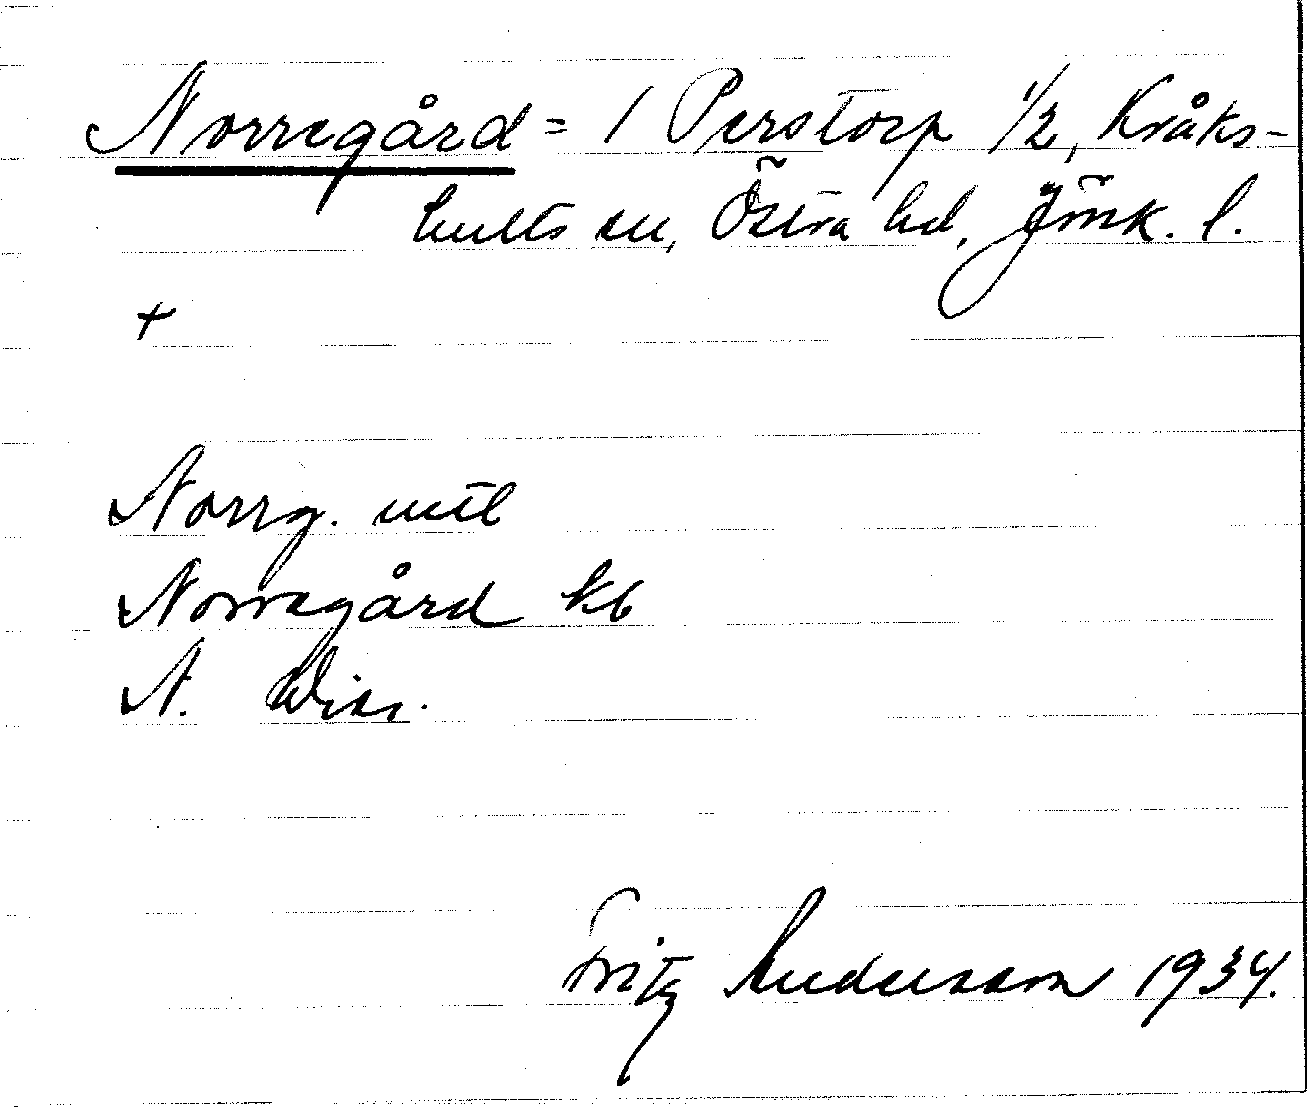 Norregård = 1 Perstorp 1/2, Kråks-
hults sn, Östra hd, Jönk. l.
+
Norrg. mtl
Norregård kb
N. Wisn.
Fritz Andersson 1934.